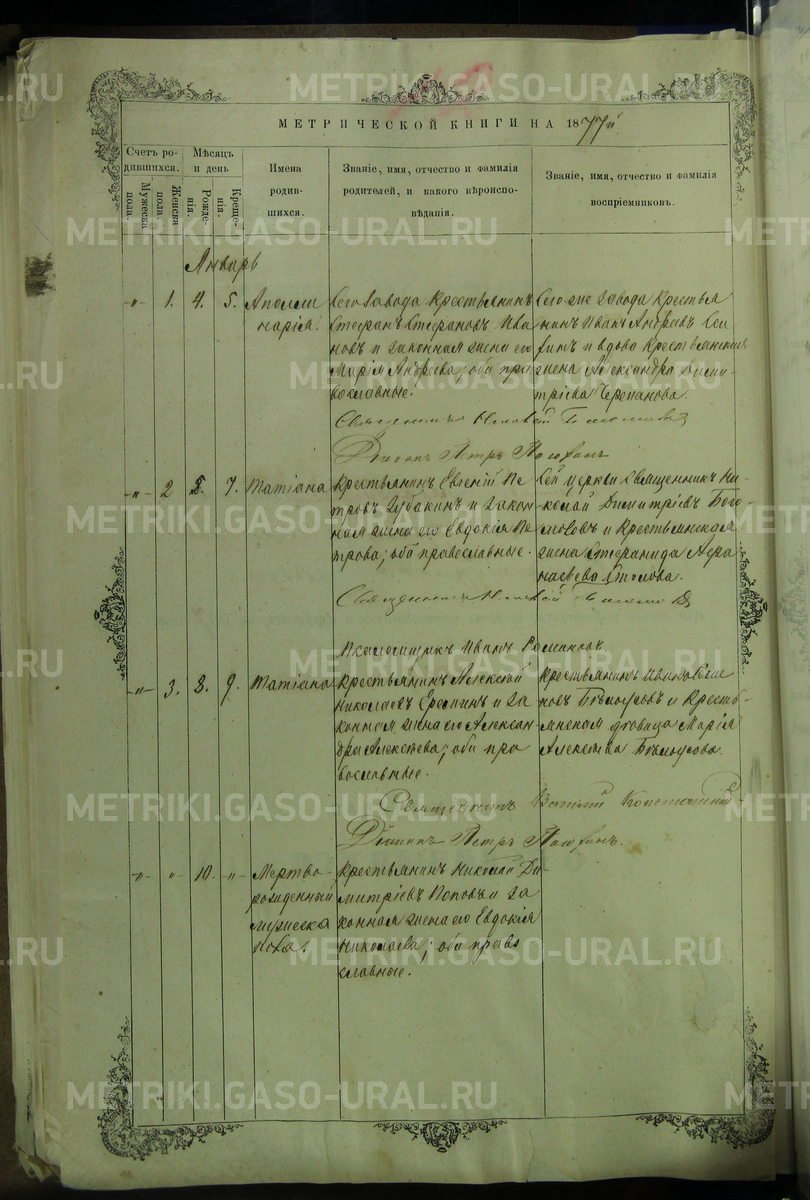 МЕТРИЧЕСКОЙ КНИГИ НА 1877й
Счетъ ро-
дившихся.
Мѣсяцъ
и день
Мужеска
пола.
Женска
пола.
Рожде-
нія.
Креще-
нія.
Имена
родив-
шихся.
Званіе, имя, отчество и фамилія
родителей, и какого вѣроиспо-
вѣданія.
Званіе, имя, отчество и фамилія
воспріемниковъ.
Январь
-„- 1. 4. 5. Аполли
нарія.
Сего завода Крестьянинъ
Стефанъ Стефановъ Ива
новъ и законная жена его
Марія Андреева; оба пра
вославные.
Сего же завода Крестья
нинъ Иванъ Андреевъ
и вдова Крестьянская
жена Александра Дими-
тріева Черепанова.
Священникъ Николай
Діаконъ Петръ
-„- 2 5. 7. Татіана
Крестьянинъ Евгеній Пе
тровъ и закон
ная жена его Евдокія Пе
трова; оба православные.
Сей церкви Священникъ Ни-
колай Димитріевъ Бого
и Крестьянская
жена Стефанида Афа
насьева
Священникъ Николай
Псаломщикъ Иванъ
-„- 3. 8. 9. Татіана
Крестьянинъ Алексѣй
Николаевъ и за
конная жена его Алексан-
дра Алексѣева; оба пра
вославные.
Крестьянинъ
новъ Бѣлоусовъ и Кресть
янская дѣвица Марія
Алексѣева Бѣлоусова
Священникъ Василій
Діаконъ Петръ
-„- „ 10. -„- Мертво
рожденный
мужеска
пола.
Крестьянинъ Николай Ди
митріевъ Поповъ и за
конная жена его Евдокія
Николаева; оба право
славные.
METRIKI.GASO-URAL.RU